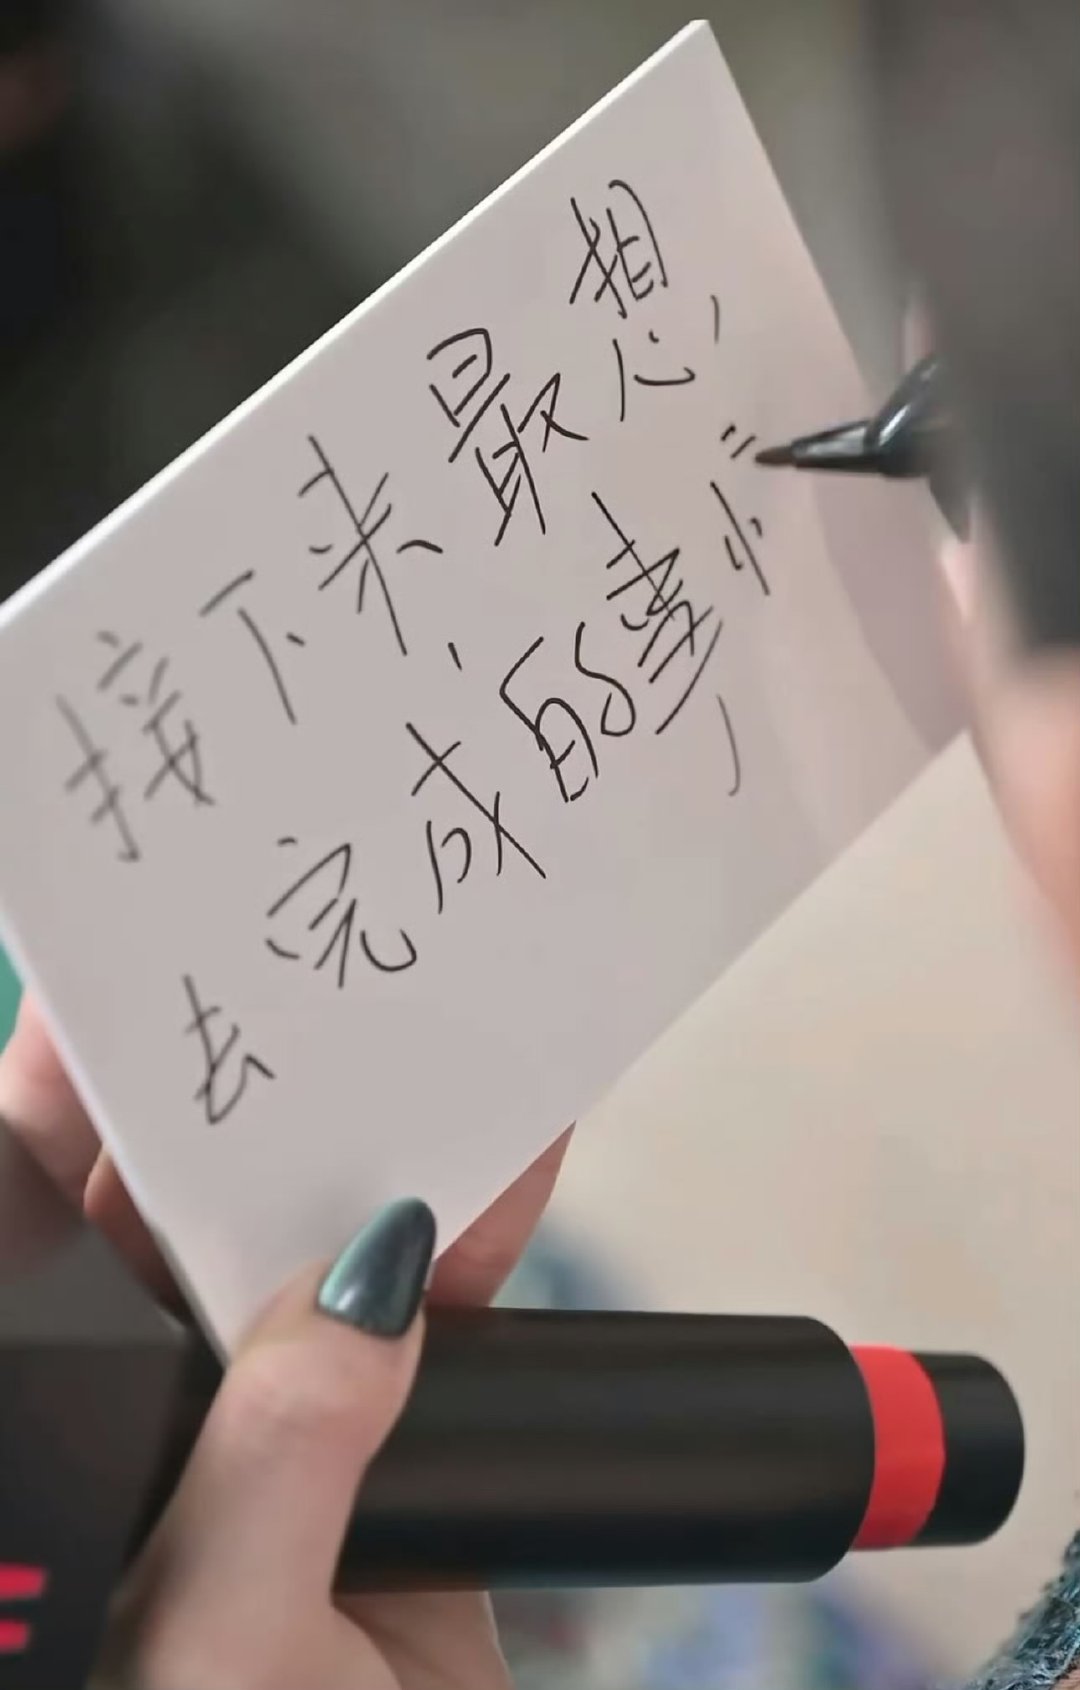 接下来最想
去完成的事